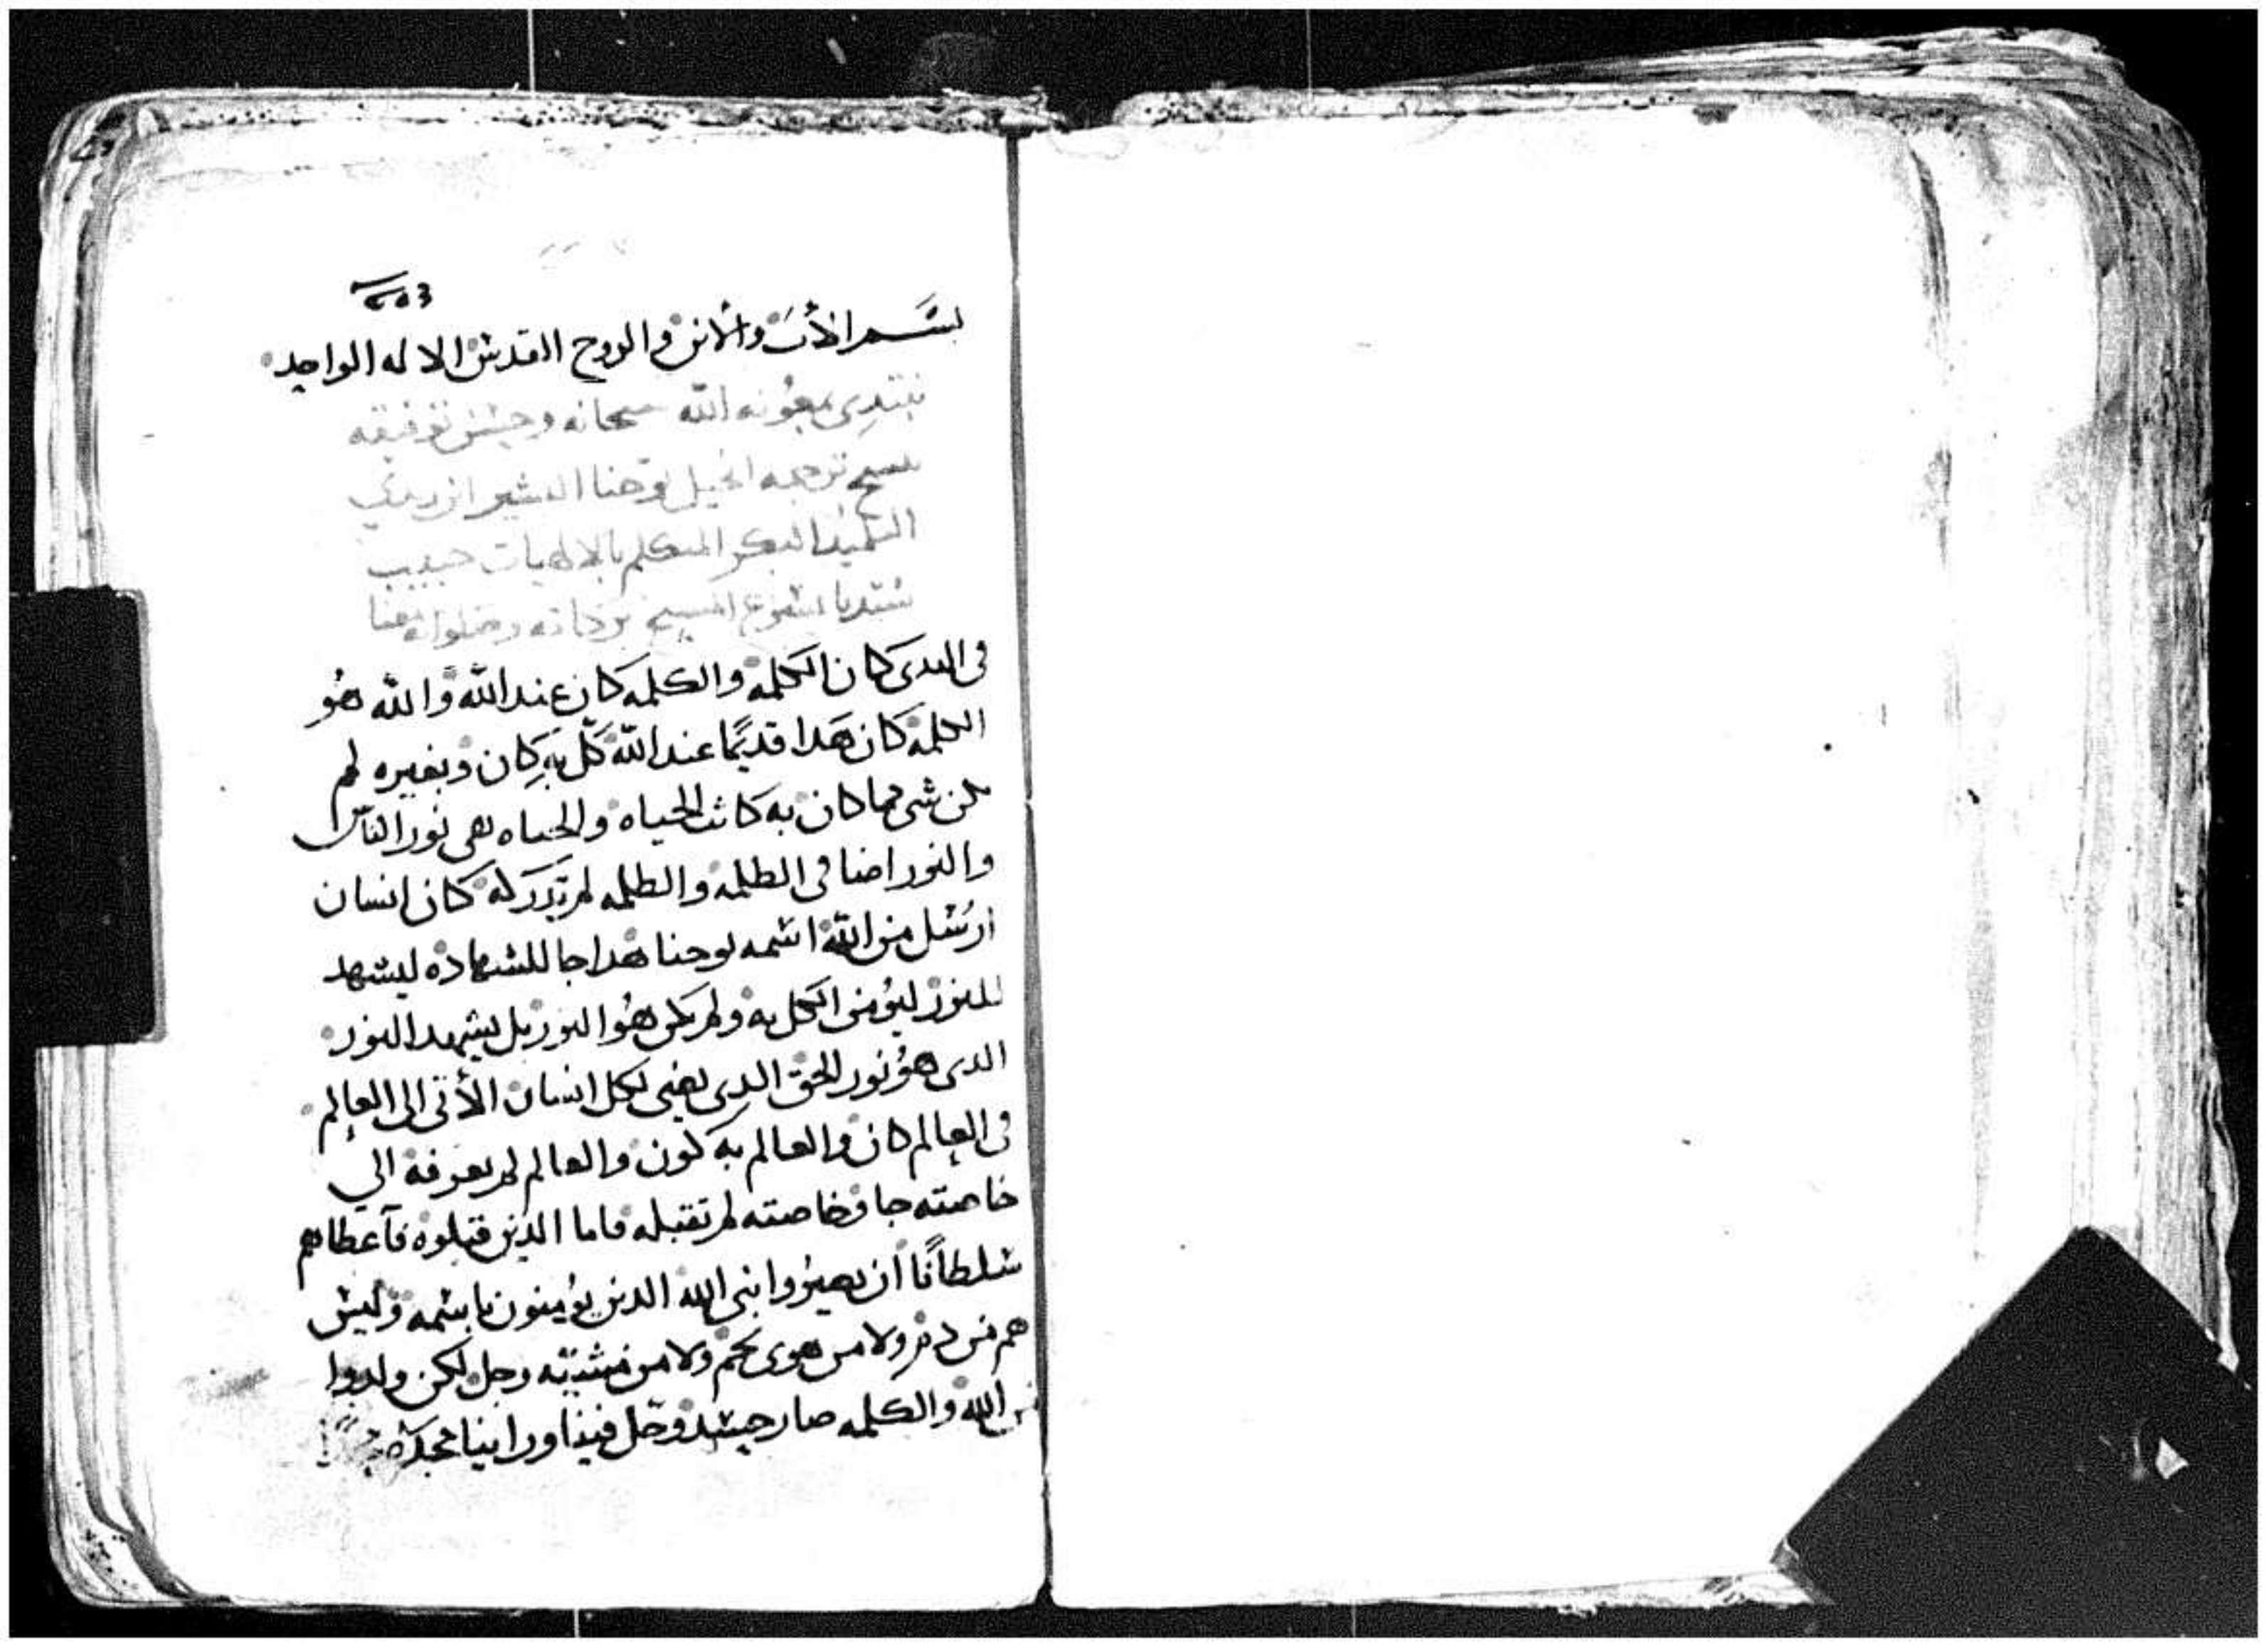 بسم الأب والابن والروح القدس الاله الواحد
نبتدى بمعونه الله سبحانه وحسن توفيقه
بنسخ ترجمه انجيل يوحنا البشير ابن زبدي
التلميذ البكر المتكلم بالالاهيات حبيب
سيدنا يسوع المسيح بركاته وصلواته معنا
فى البدى كان الكلمه والكلمه كان عند الله والله هو
الكلمه كان هدا قديمًا عند الله كلّ به كان وبغيره لم
يكن شى مما كان به كانت الحياه والحياه هى نور الناس
والنور اضا فى الظلمه والظلمه لم تدركه كان انسان
ارسُل من الله اسمه يوحنا هدا جا للشهاده ليشهد
للنور ليؤمن الكل به ولم يكن هُوا النور بل ليشهد النور
الدى هو نور الحق الدى يضى لكل انسان الأتى الى العالم
فى العالم كان والعالم به كون والعالم لم يعرفه الي
خاصته جا وخاصته لم تقبله فاما الذين قبلوه فآعطاهم
سلطانًا أن يصيروا بنى الله الدين يؤمنون باسمه وليس
هم من دم ولا من هوى لحم ولا من مشيته رجل لكن ولدوا
من الله والكلمه صار جسد وحل فينا وراينا مجده